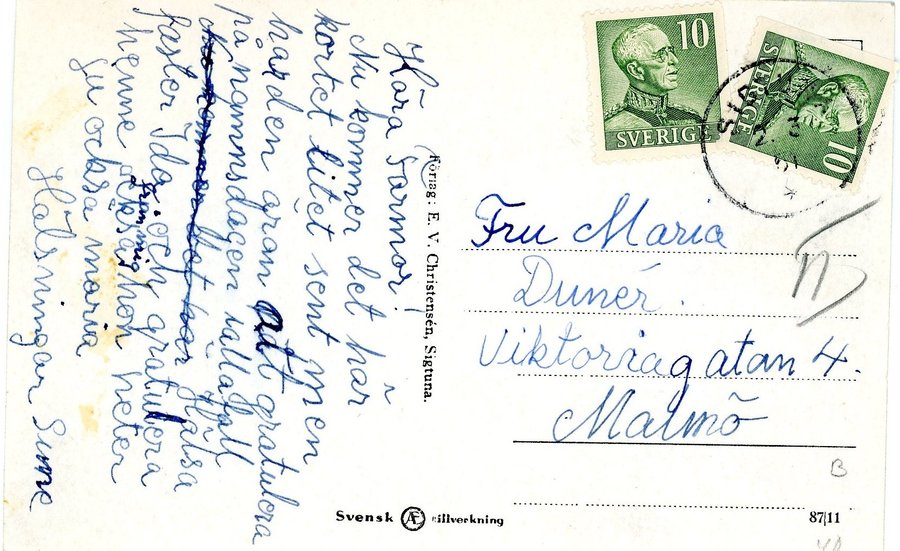 Kära Farmor!
Nu kommer det här
kortet litet sent men
har den äran att gratulera
på namnsdagen iallafall
Hälsa
faster Ida och gratulera
henne från mig
också hon heter
ju också maria
Hälsningar Sune
Förlag: E. V. Christensén, Sigtuna.
10
SVERIGE
SVERIGE
10
Fru Maria
Dunér.
Viktoriagatan 4.
Malmö
B
Svensk Æ tillverkning
87/11